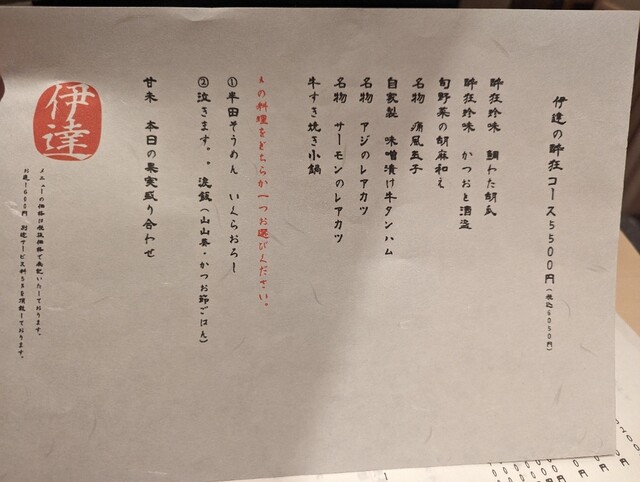 伊達の酔狂コース5500円(税込6050円)
酔狂珍味 鯛わた胡瓜
酔狂珍味 かつおと酒盗
旬野菜の胡麻和え
名物 痛風玉子
自家製 味噌漬け牛タンハム
名物 アジのレアカツ
名物 サーモンのレアカツ
牛すき焼き小鍋
の料理をどちらか一つお選びください。
①半田そうめん いくらおろし
②泣きます。。涙飯(山山葵・かつお節ごはん)
甘未 本日の果実盛り合わせ
メニューの価格は税抜価格で表記いたしております。
お通し600円 別途サービス料5%を頂戴しております。
伊達